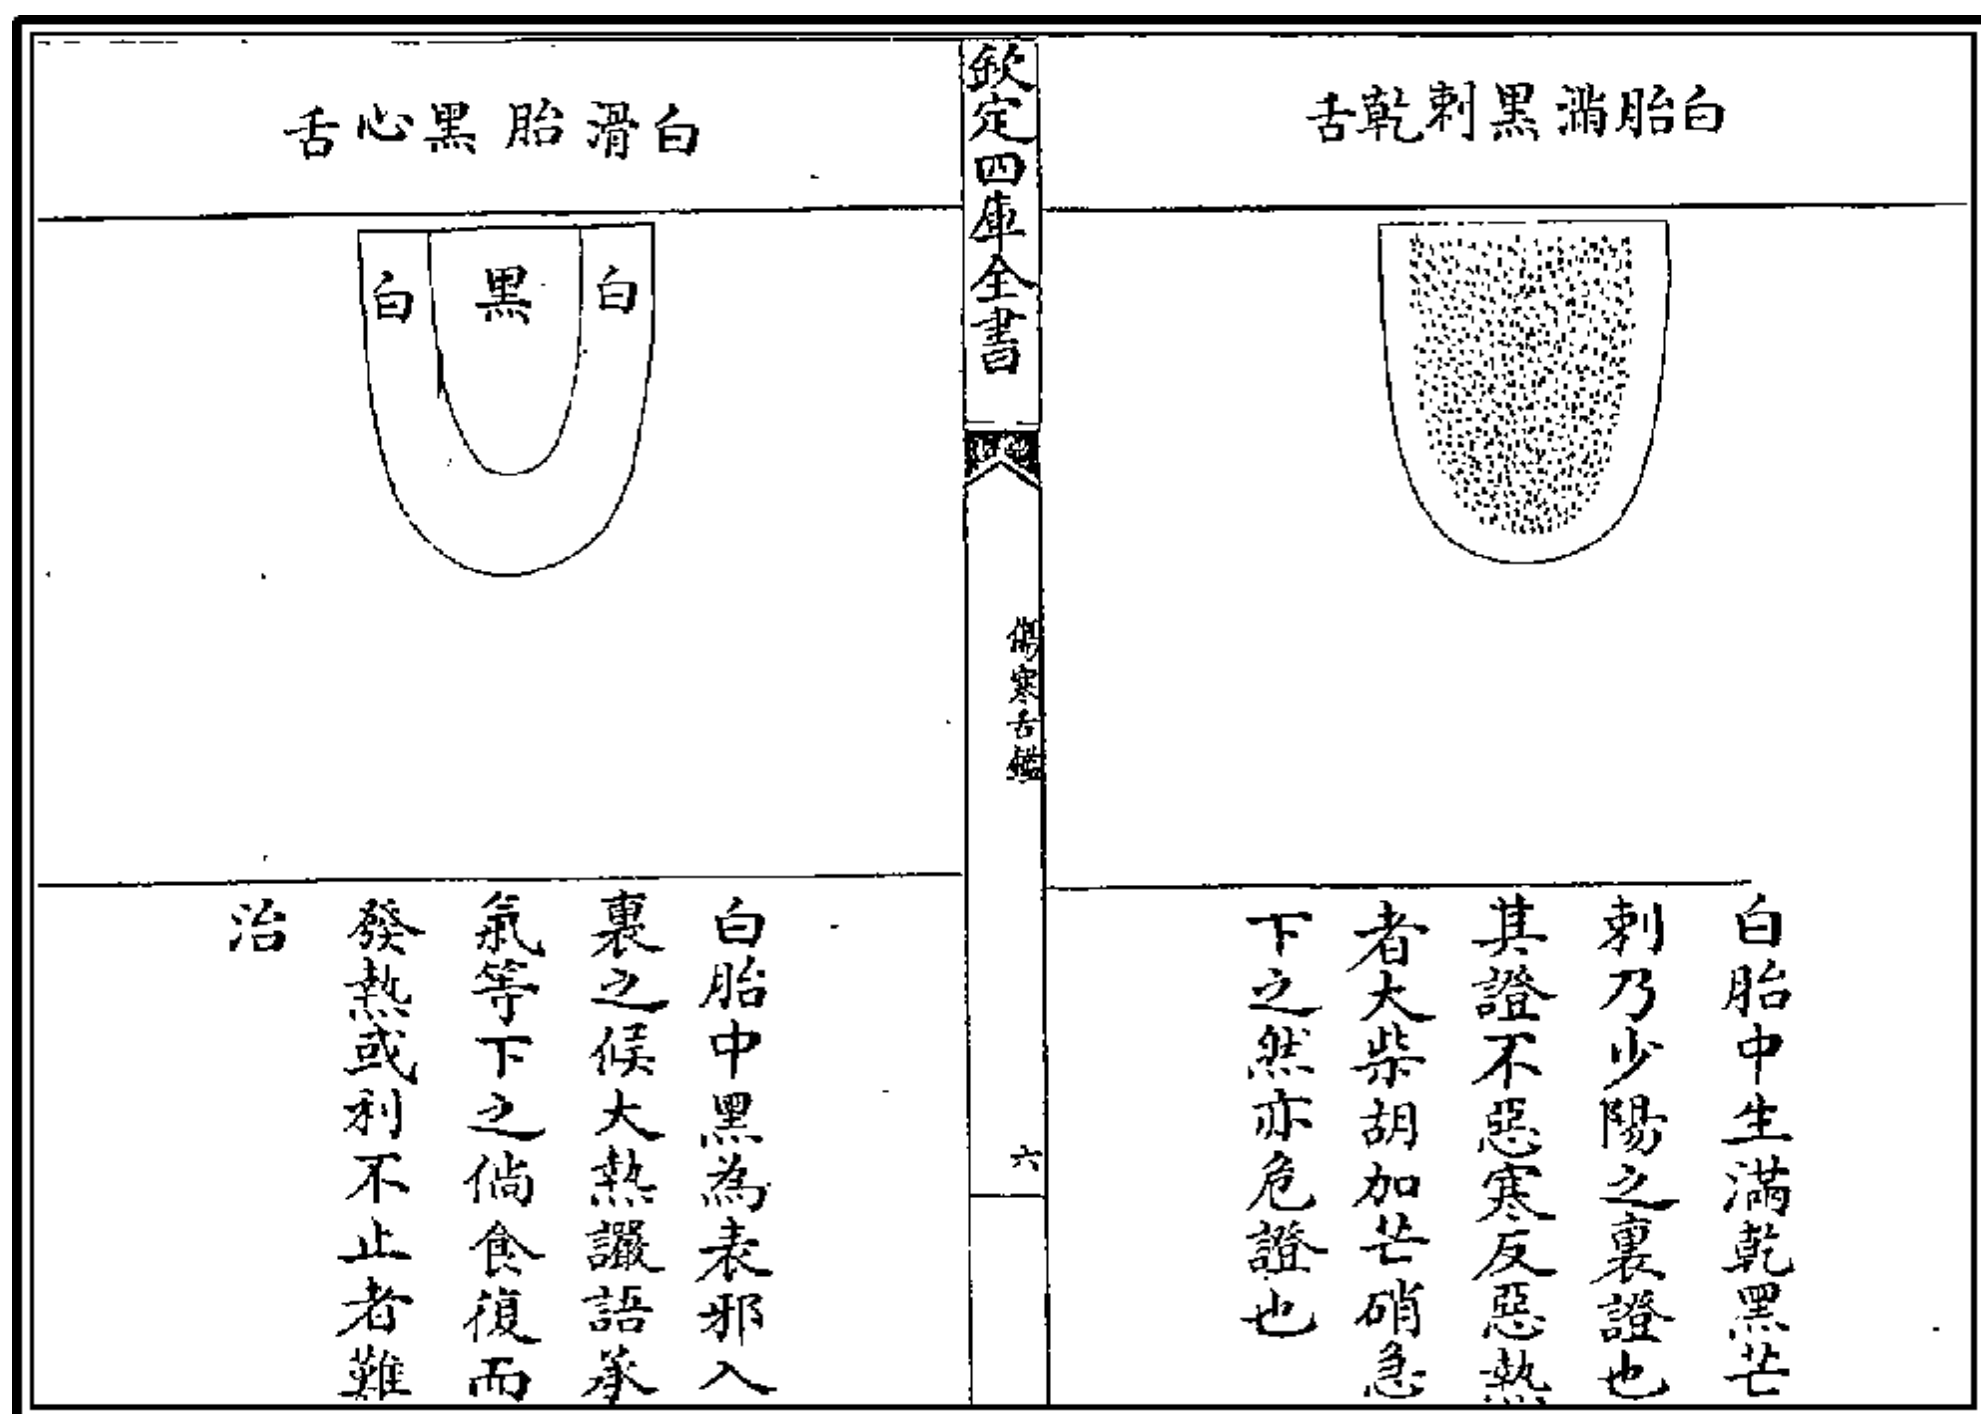 白胎滿黑刺乾舌
白胎中生滿乾黑芒
刺乃少陽之裏證也
其證不惡寒反惡熱
者大柴胡加芒硝急
下之然亦危證也
欽定四庫全書
傷寒舌鑑
六
白滑胎黑心舌
白
黑
白
白胎中黑為表邪入
裏之候大熱讝語承
氣等下之倘食復而
發熱或利不止者難
治